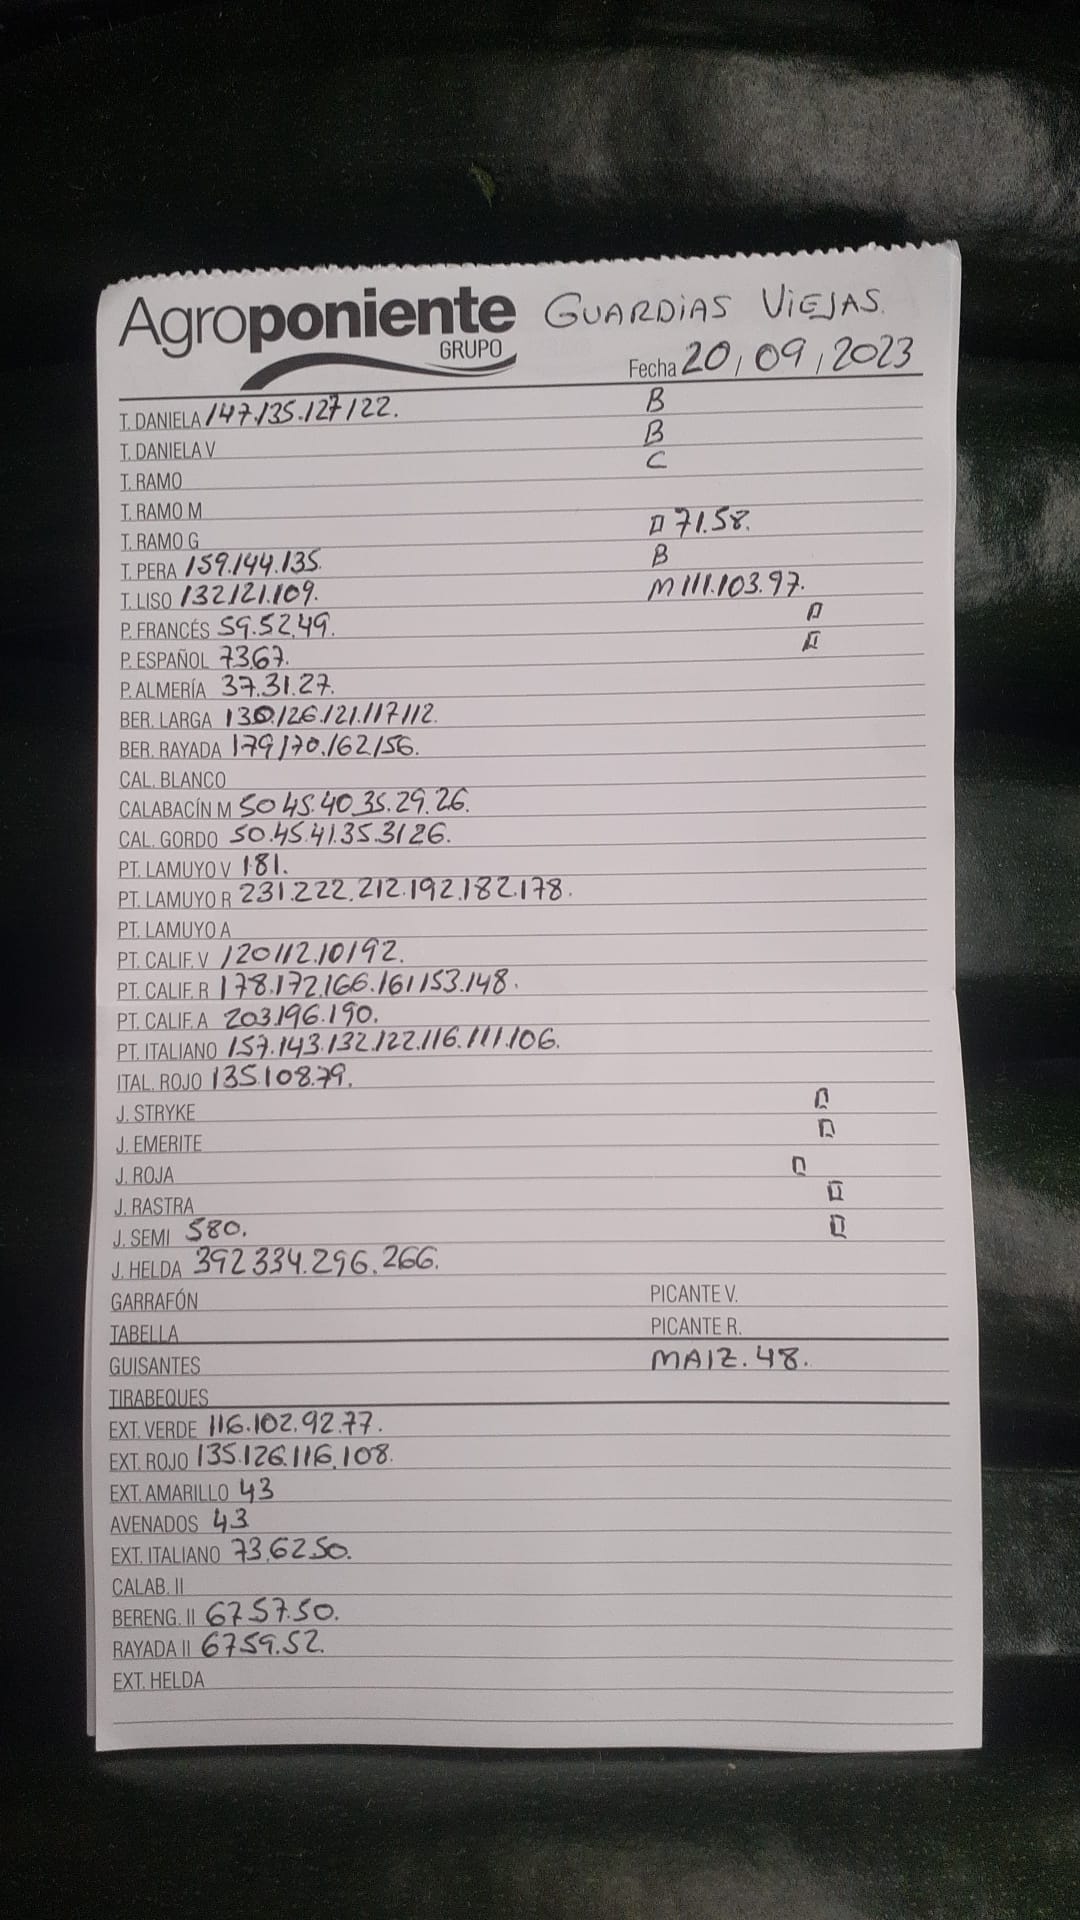 Agroponiente GUARDIAS VIEJAS.
GRUPO
Fecha 20/09/2023
T. DANIELA 147.135.127.122. B
T. DANIELA V B
T. RAMO C
T. RAMO M
T. RAMO G 71.58.
T. PERA 159.144.135. B
T. LISO 132.121.109. M 111.103.97.
P. FRANCÉS 59.52.49.
P. ESPAÑOL 73.67.
P. ALMERÍA 37.31.27.
BER. LARGA 130.126.121.117.112.
BER. RAYADA 179.170.162.156.
CAL. BLANCO
CALABACÍN M 50.45.40.35.29.26.
CAL. GORDO 50.45.41.35.31.26.
PT. LAMUYO V 181.
PT. LAMUYO R 231.222.212.192.182.178.
PT. LAMUYO A
PT. CALIF. V 120.112.101.92.
PT. CALIF. R 178.172.166.161.153.148.
PT. CALIF. A 203.196.190.
PT. ITALIANO 157.143.132.122.116.111.106.
ITAL. ROJO 135.108.79.
J. STRYKE
J. EMERITE
J. ROJA
J. RASTRA
J. SEMI 580.
J. HELDA 392.334.296.266.
GARRAFÓN PICANTE V.
TABELLA PICANTE R.
GUISANTES MAIZ. 48.
TIRABEQUES
EXT. VERDE 116.102.92.77.
EXT. ROJO 135.126.116.108.
EXT. AMARILLO 43
AVENADOS 43
EXT. ITALIANO 73.62.50.
CALAB. II
BERENG. II 67.57.50.
RAYADA II 67.59.52.
EXT. HELDA